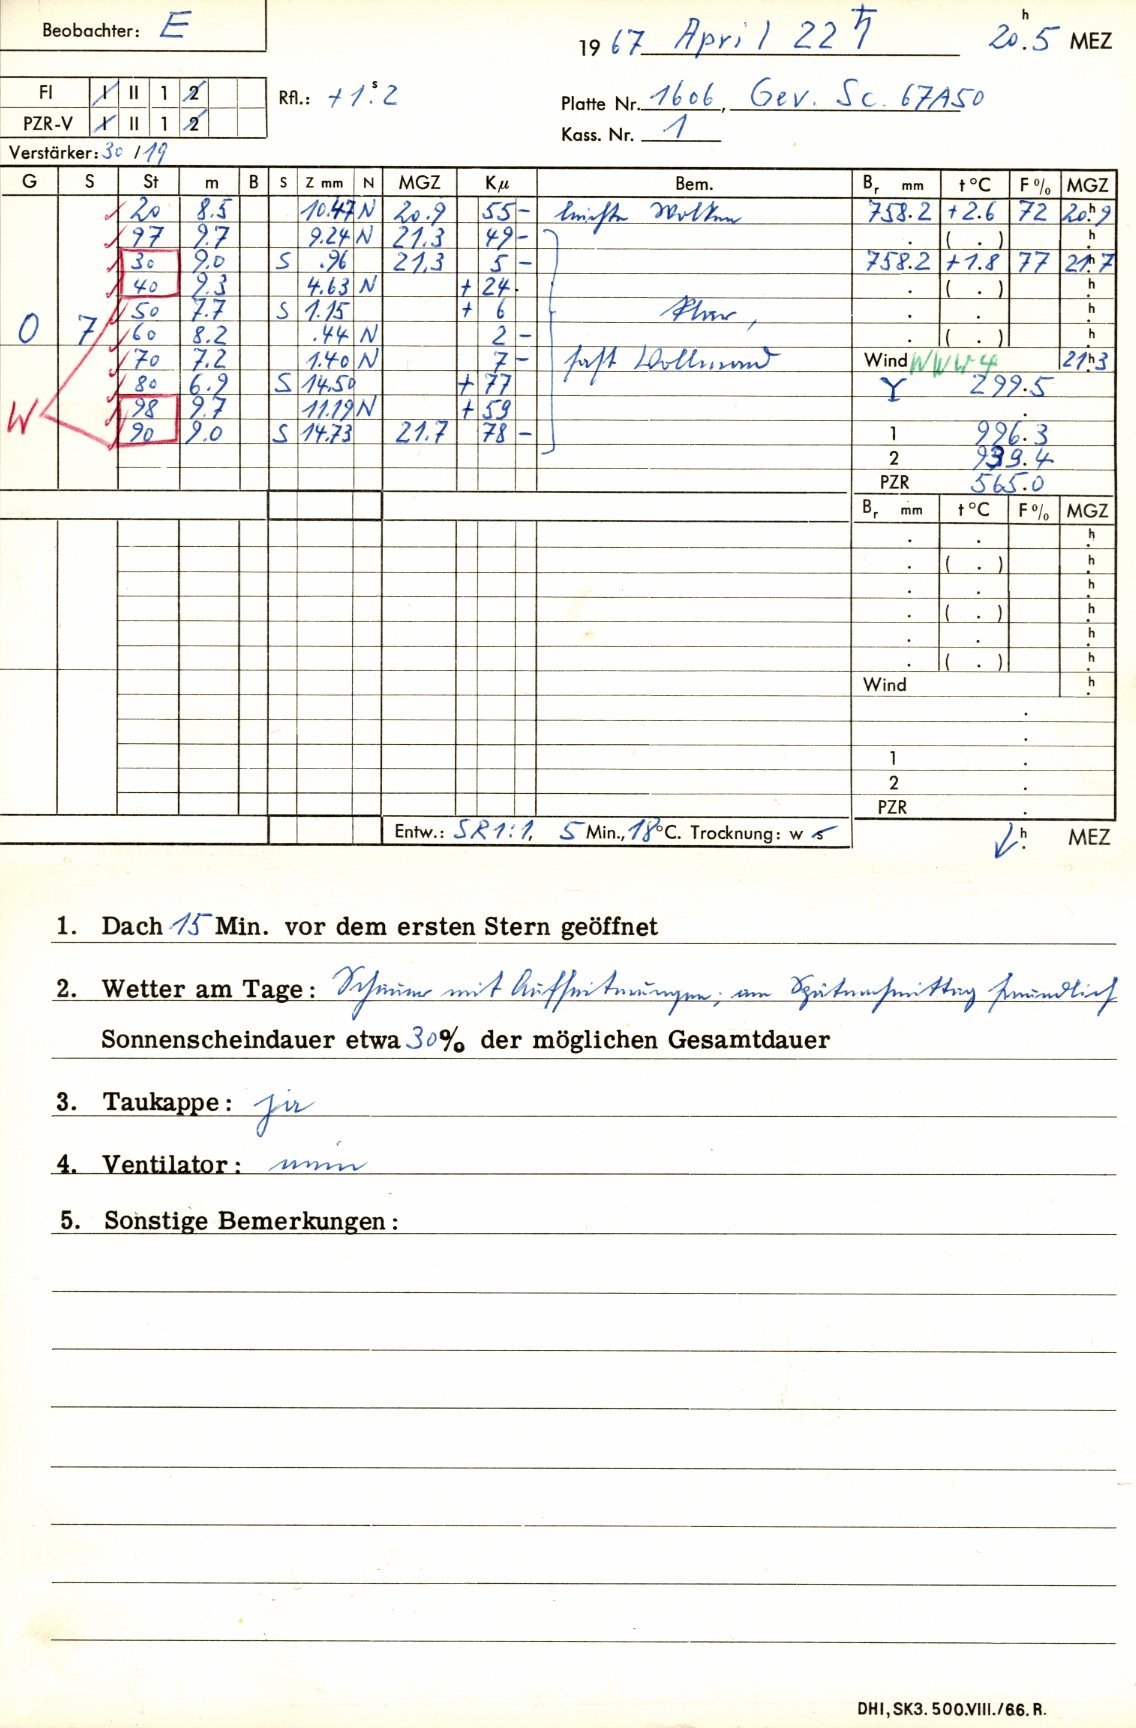 Beobachter: E
1967 April 22 ♄ 20.ʰ5 MEZ
FI I II 1 2
Rfl.: +1.ˢ2
Platte Nr. 1606, Gev. Sc. 67A50
PZR-V I II 1 2
Kass. Nr. 1
Verstärker: 30 / 19
G S St m B S Z mm N MGZ Kμ Bem. Bᵣ mm t °C F % MGZ
20 8.5 10.47 N 20.9 55 - leichte Wolken 758.2 +2.6 72 20.ʰ9
97 9.7 9.24 N 21.3 49 - . ( . ) .ʰ
30 9.0 S .96 21.3 5 - 758.2 +1.8 77 21.ʰ7
40 9.3 4.63 N + 24 . ( . ) .ʰ
50 7.7 S 1.15 + 6 klar, . . .ʰ
0 7 60 8.2 .44 N 2 - . ( . ) .ʰ
70 7.2 1.40 N 7 - fast Vollmond Wind WNW 4 21.ʰ3
80 6.9 S 14.50 + 77 Y 299.5
W 98 9.7 11.19 N + 59 .
90 9.0 S 14.73 21.7 78 - 1 996.3
2 939.4
PZR 565.0
Bᵣ mm t °C F % MGZ
. . .ʰ
. ( . ) .ʰ
. . .ʰ
. ( . ) .ʰ
. . .ʰ
. ( . ) .ʰ
Wind .ʰ
.
.
1 .
2 .
PZR .
Entw.: SR 1:1, 5 Min., 18°C. Trocknung: w s
.ʰ MEZ
1. Dach 15 Min. vor dem ersten Stern geöffnet
2. Wetter am Tage: Schauer mit Aufheiterungen; am Spätnachmittag freundlich
Sonnenscheindauer etwa 30% der möglichen Gesamtdauer
3. Taukappe: ja
4. Ventilator: nein
5. Sonstige Bemerkungen:
DHI, SK3. 500.VIII./66. R.